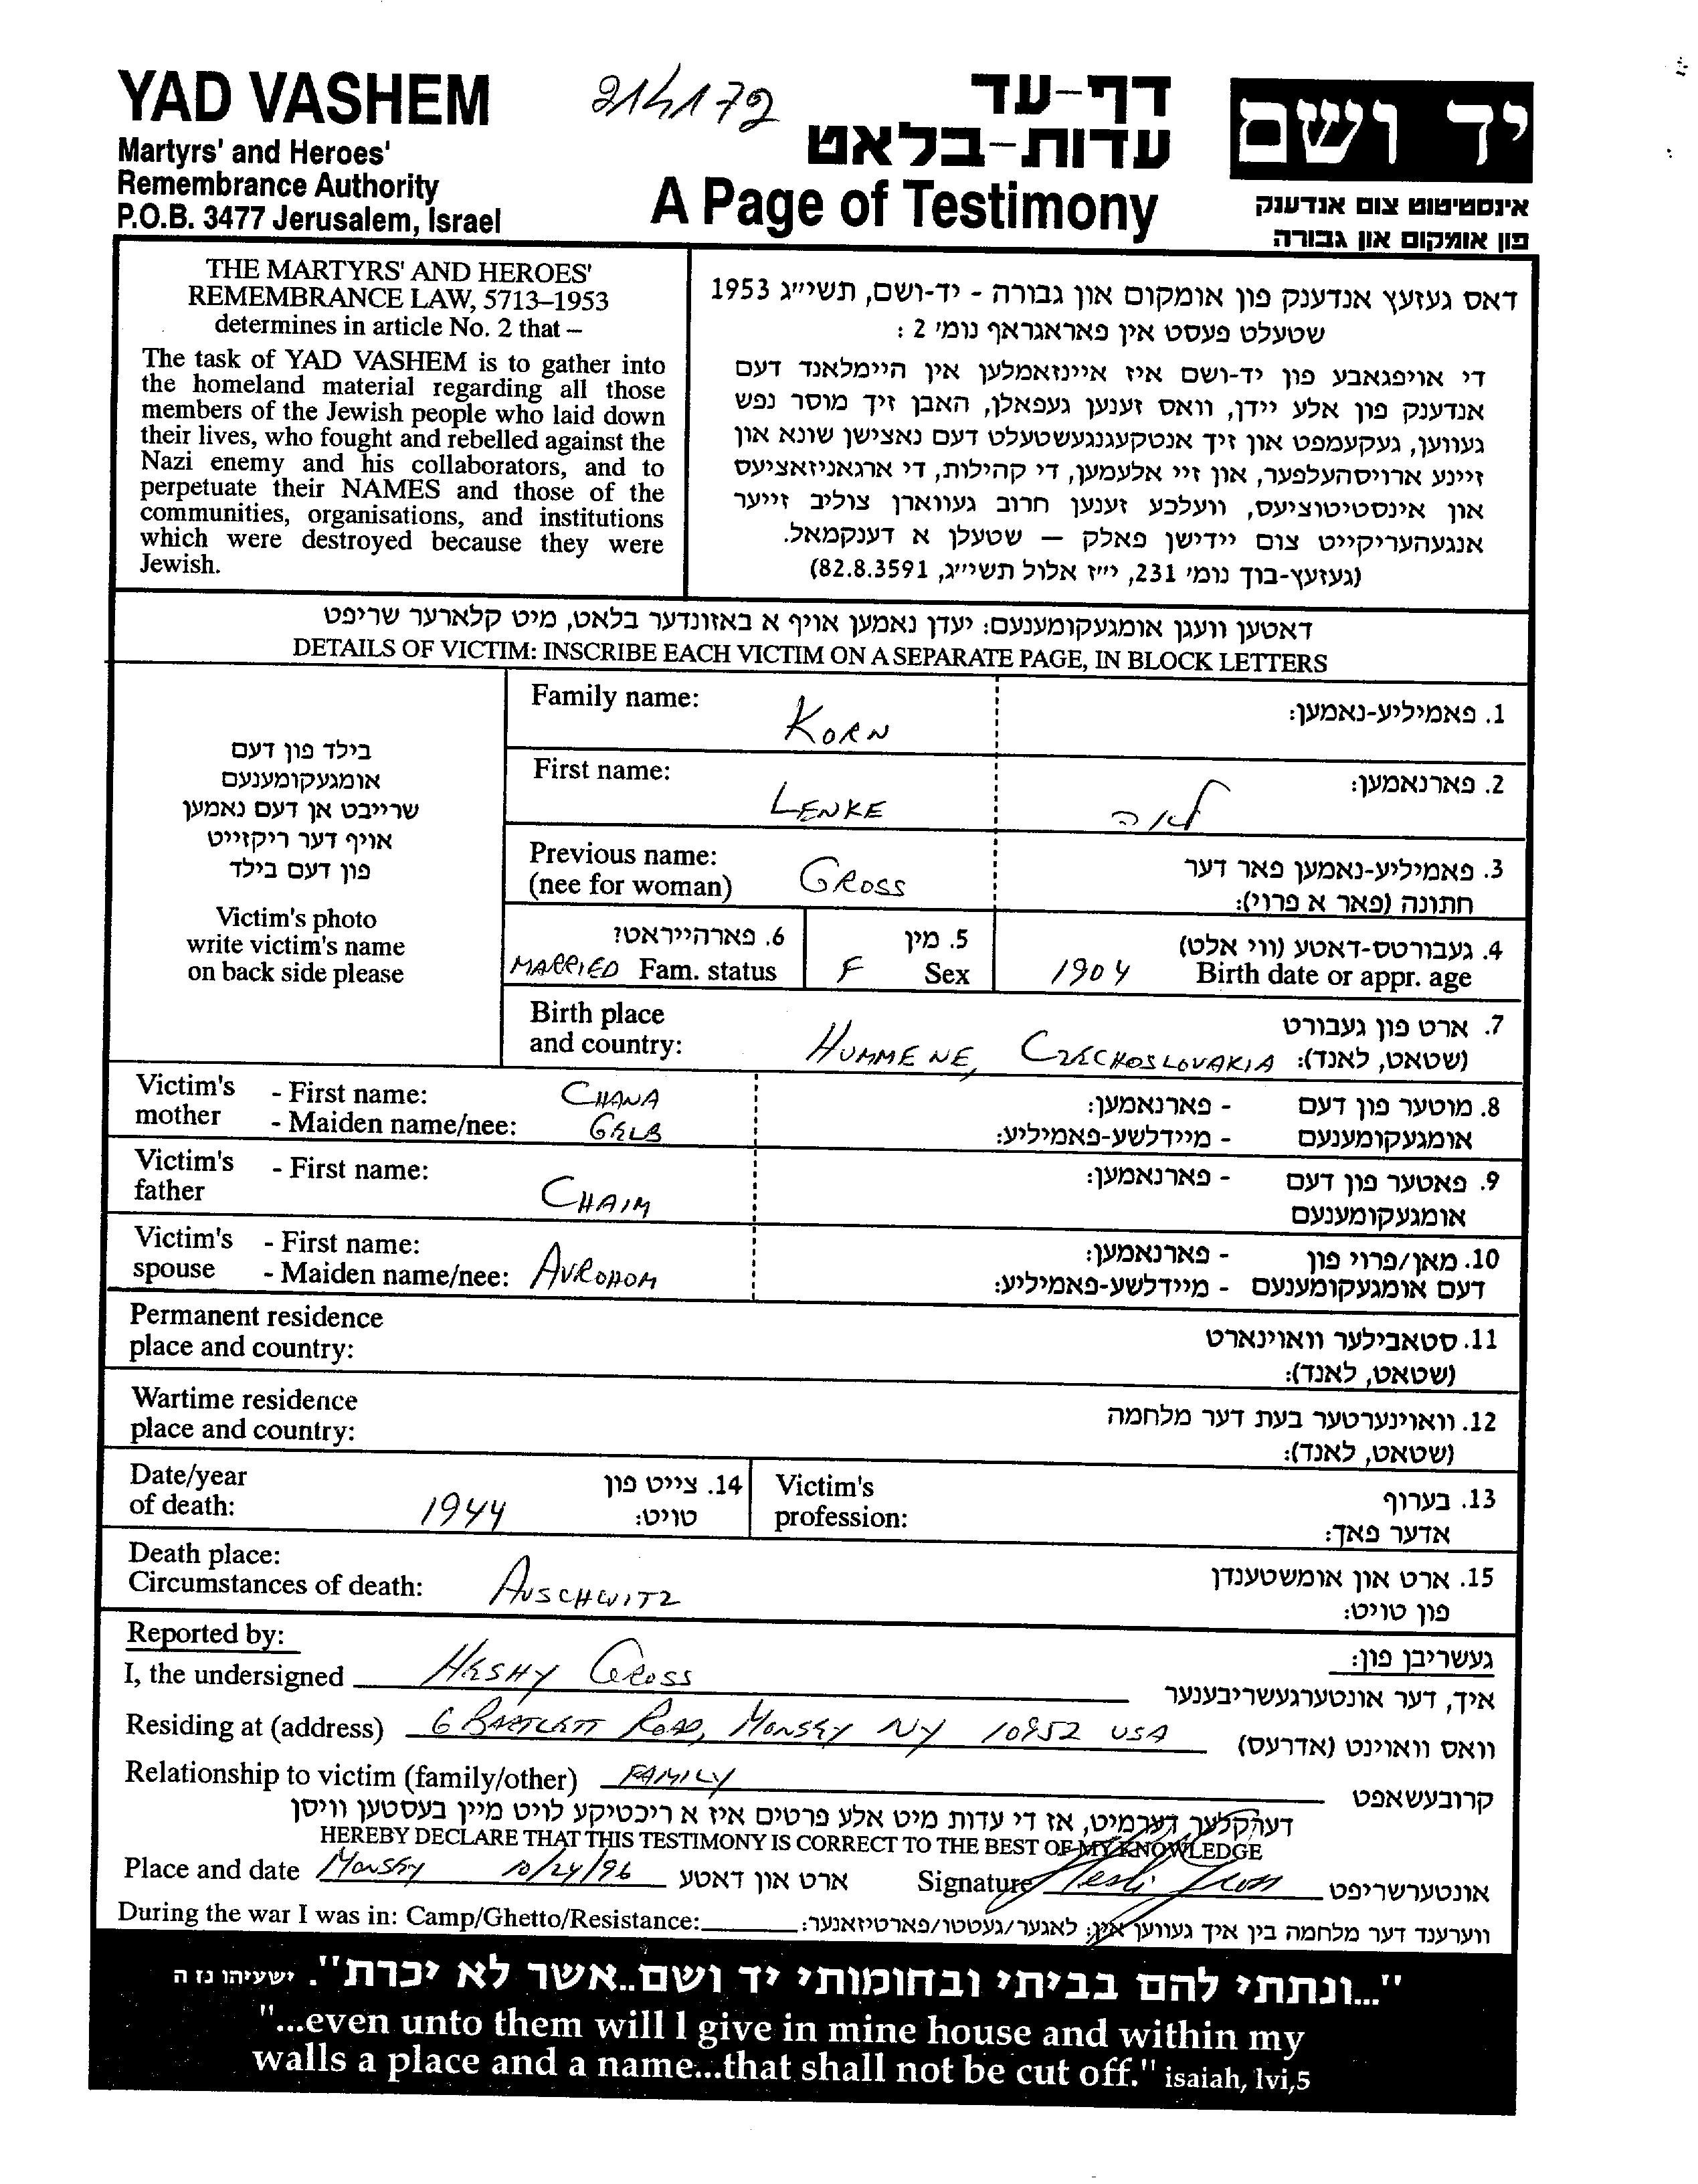 YAD VASHEM
Martyrs' and Heroes'
Remembrance Authority
P.O.B. 3477 Jerusalem, Israel
דף-עד
עדות-בלאט
A Page of Testimony
יד ושם
אינסטיטוט צום אנדענק
פון אומקום און גבורה
THE MARTYRS' AND HEROES'
REMEMBRANCE LAW, 5713–1953
determines in article No. 2 that –
The task of YAD VASHEM is to gather into
the homeland material regarding all those
members of the Jewish people who laid down
their lives, who fought and rebelled against the
Nazi enemy and his collaborators, and to
perpetuate their NAMES and those of the
communities, organisations, and institutions
which were destroyed because they were
Jewish.
דאס געזעץ אנדענק פון אומקום און גבורה - יד-ושם, תשי״ג 1953
שטעלט פעסט אין פאראגראף נומ׳ 2 :
די אויפגאבע פון יד-ושם איז איינזאמלען אין היימלאנד דעם
אנדענק פון אלע יידן, וואס זענען געפאלן, האבן זיך מוסר נפש
געווען, געקעמפט און זיך אנטקעגנגעשטעלט דעם נאצישן שונא און
זיינע ארויסהעלפער, און זיי אלעמען, די קהילות, די ארגאניזאציעס
און אינסטיטוציעס, וועלכע זענען חרוב געווארן צוליב זייער
אנגעהעריקייט צום יידישן פאלק — שטעלן א דענקמאל.
(געזעץ-בוך נומ׳ 231, י״ז אלול תשי״ג, 82.8.3591)
דאטען וועגן אומגעקומענעם: יעדן נאמען אויף א באזונדער בלאט, מיט קלארער שריפט
DETAILS OF VICTIM: INSCRIBE EACH VICTIM ON A SEPARATE PAGE, IN BLOCK LETTERS
בילד פון דעם
אומגעקומענעם
שרייבט אן דעם נאמען
אויף דער ריקזייט
פון דעם בילד
Victim's photo
write victim's name
on back side please
Family name: KORN 1. פאמיליע-נאמען:
First name: LENKE לאה 2. פארנאמען:
Previous name: 3. פאמיליע-נאמען פאר דער
(nee for woman) GROSS חתונה (פאר א פרוי):
6. פארהייראט? 5. מין 4. געבורטס-דאטע (ווי אלט)
MARRIED Fam. status F Sex 1904 Birth date or appr. age
Birth place 7. ארט פון געבורט
and country: HUMMENE, CZECHOSLOVAKIA (שטאט, לאנד):
Victim's - First name: CHANA - פארנאמען: 8. מוטער פון דעם
mother - Maiden name/nee: GELB - מיידלשע-פאמיליע: אומגעקומענעם
Victim's - First name: - פארנאמען: 9. פאטער פון דעם
father CHAIM אומגעקומענעם
Victim's - First name: - פארנאמען: 10. מאן/פרוי פון
spouse - Maiden name/nee: AVROHOM - מיידלשע-פאמיליע: דעם אומגעקומענעם
Permanent residence 11. סטאבילער וואוינארט
place and country: (שטאט, לאנד):
Wartime residence 12. וואוינערטער בעת דער מלחמה
place and country: (שטאט, לאנד):
Date/year 14. צייט פון Victim's 13. בערוף
of death: 1944 טויט: profession: אדער פאך:
Death place: 15. ארט און אומשטענדן
Circumstances of death: AUSCHWITZ פון טויט:
Reported by: געשריבן פון:
I, the undersigned HESHY GROSS איך, דער אונטערגעשריבענער
Residing at (address) 6 BARTLETT ROAD, MONSEY NY 10952 USA וואס וואוינט (אדרעס)
Relationship to victim (family/other) FAMILY קרובעשאפט
דערקלער דערמיט, אז די עדות מיט אלע פרטים איז א ריכטיקע לויט מיין בעסטען וויסן
HEREBY DECLARE THAT THIS TESTIMONY IS CORRECT TO THE BEST OF MY KNOWLEDGE
Place and date MONSEY 10/24/96 ארט און דאטע Signature אונטערשריפט
During the war I was in: Camp/Ghetto/Resistance: ווערענד דער מלחמה בין איך געווען אין: לאגער/געטטו/פארטיזאנער:
"...ונתתי להם בביתי ובחומותי יד ושם..אשר לא יכרת". ישעיהו נז ה
"...even unto them will I give in mine house and within my
walls a place and a name...that shall not be cut off." isaiah, lvi,5